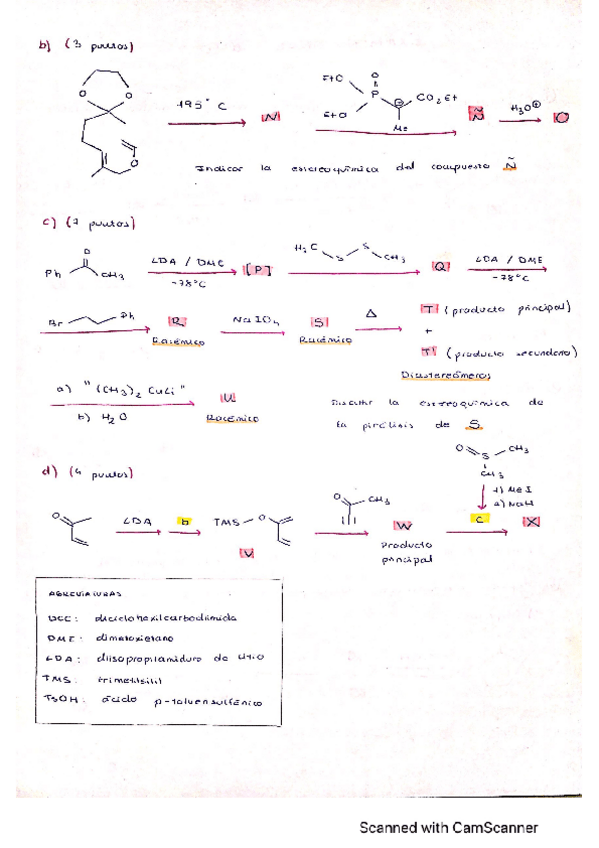 b) (3 puntos)
O O
195° C
N
EtO O
P
⊖ CO₂Et
EtO
Me
Ñ
H₃O⊕
O
O
Indicar la estereoquímica del compuesto Ñ
c) (7 puntos)
O
Ph CH₃
LDA / DME
-78°C
[P]
H₃C S S CH₃
Q
LDA / DME
-78°C
Br Ph
R
Racémico
NaIO₄
S
Racémico
Δ
T (producto principal)
+
T' (producto secundario)
Diastereómeros
a) "(CH₃)₂ CuLi"
b) H₂O
U
Racémico
Discutir la estereoquímica de
la pirólisis de S
d) (4 puntos)
O
LDA
b
TMS - O
V
O CH₃
W
Producto
principal
O S CH₃
CH₃
1) MeI
2) NaH
c
X
ABREVIATURAS
DCC: diciclohexilcarbodiimida
DME: dimetoxietano
LDA: diisopropilamiduro de litio
TMS: trimetilsilil
TsOH: ácido p-toluensulfónico
Scanned with CamScanner